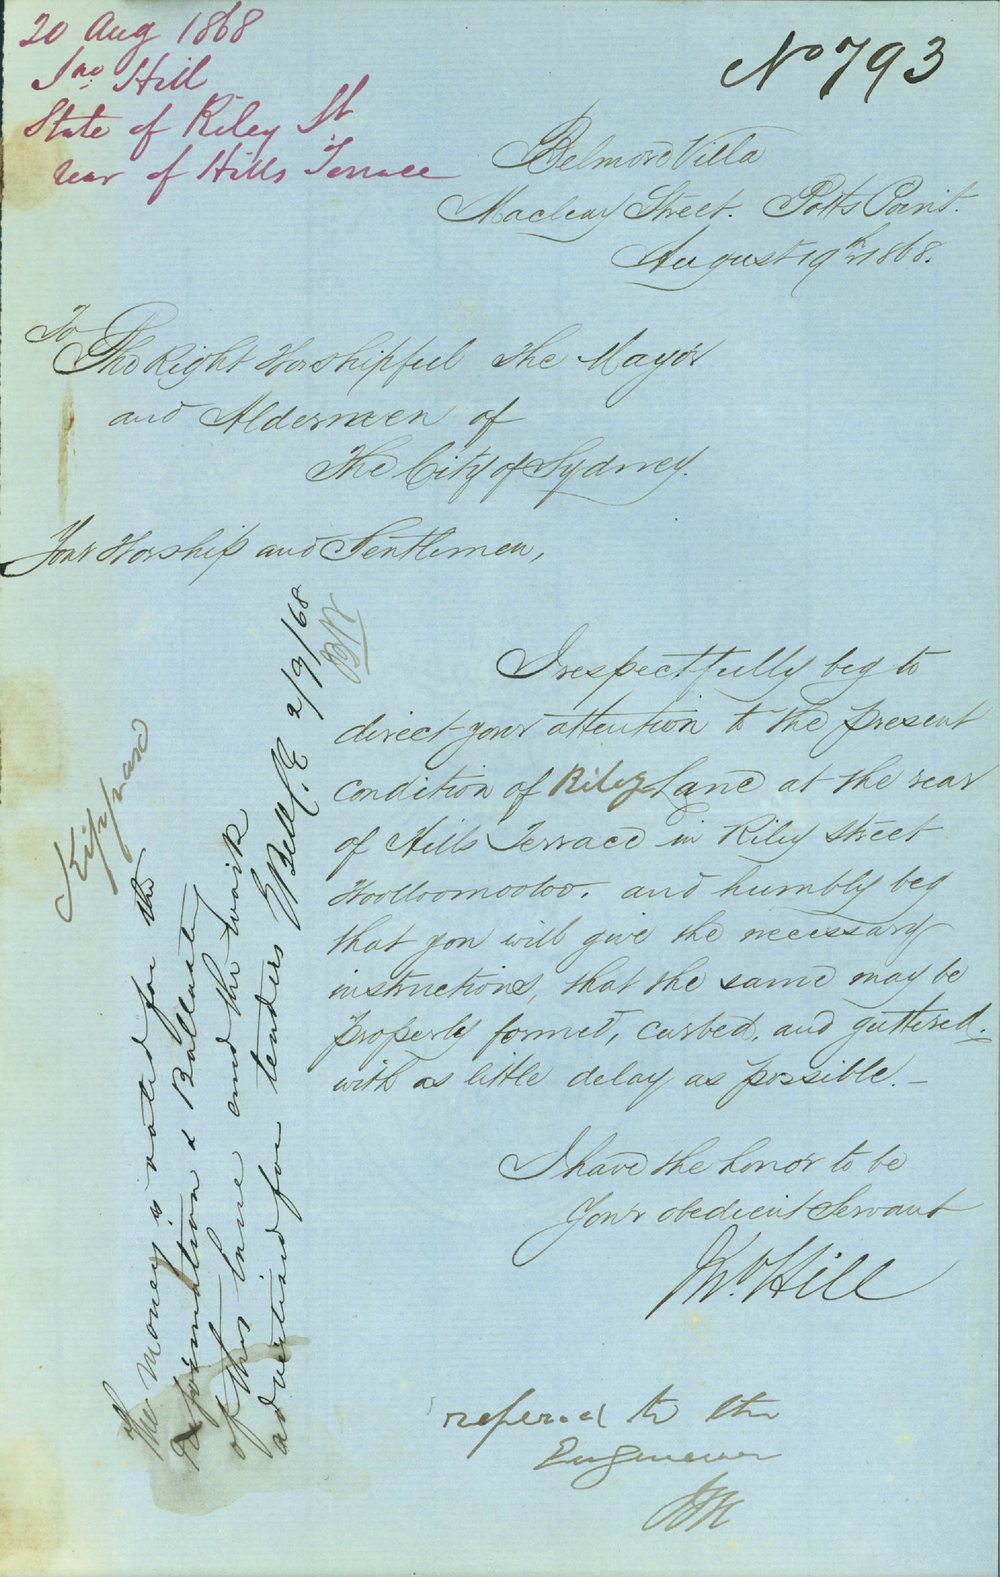 20 Aug 1868
Jno Hill
State of Riley St
rear of Hills Terrace
No 793
Belmore Villa
Macleay Street. Potts Point.
August 19th 1868.
To
The Right Worshipful The Mayor
and Aldermen of
The City of Sydney.
Your Worship and Gentlemen,
I respectfully beg to
direct your attention to the present
condition of Riley Lane at the rear
of Hills Terrace in Riley Street
Woolloomooloo. and humbly beg
that you will give the necessary
instructions, that the same may be
properly formed, curbed, and guttered.
with as little delay as possible.—
I have the honor to be
Your obedient Servant
Jno. Hill
referred to the
Engineer
Kippard
The money is voted for the
formation & Ballasting
of this lane and the work
advertised for tenders EBell C.E 2/9/68